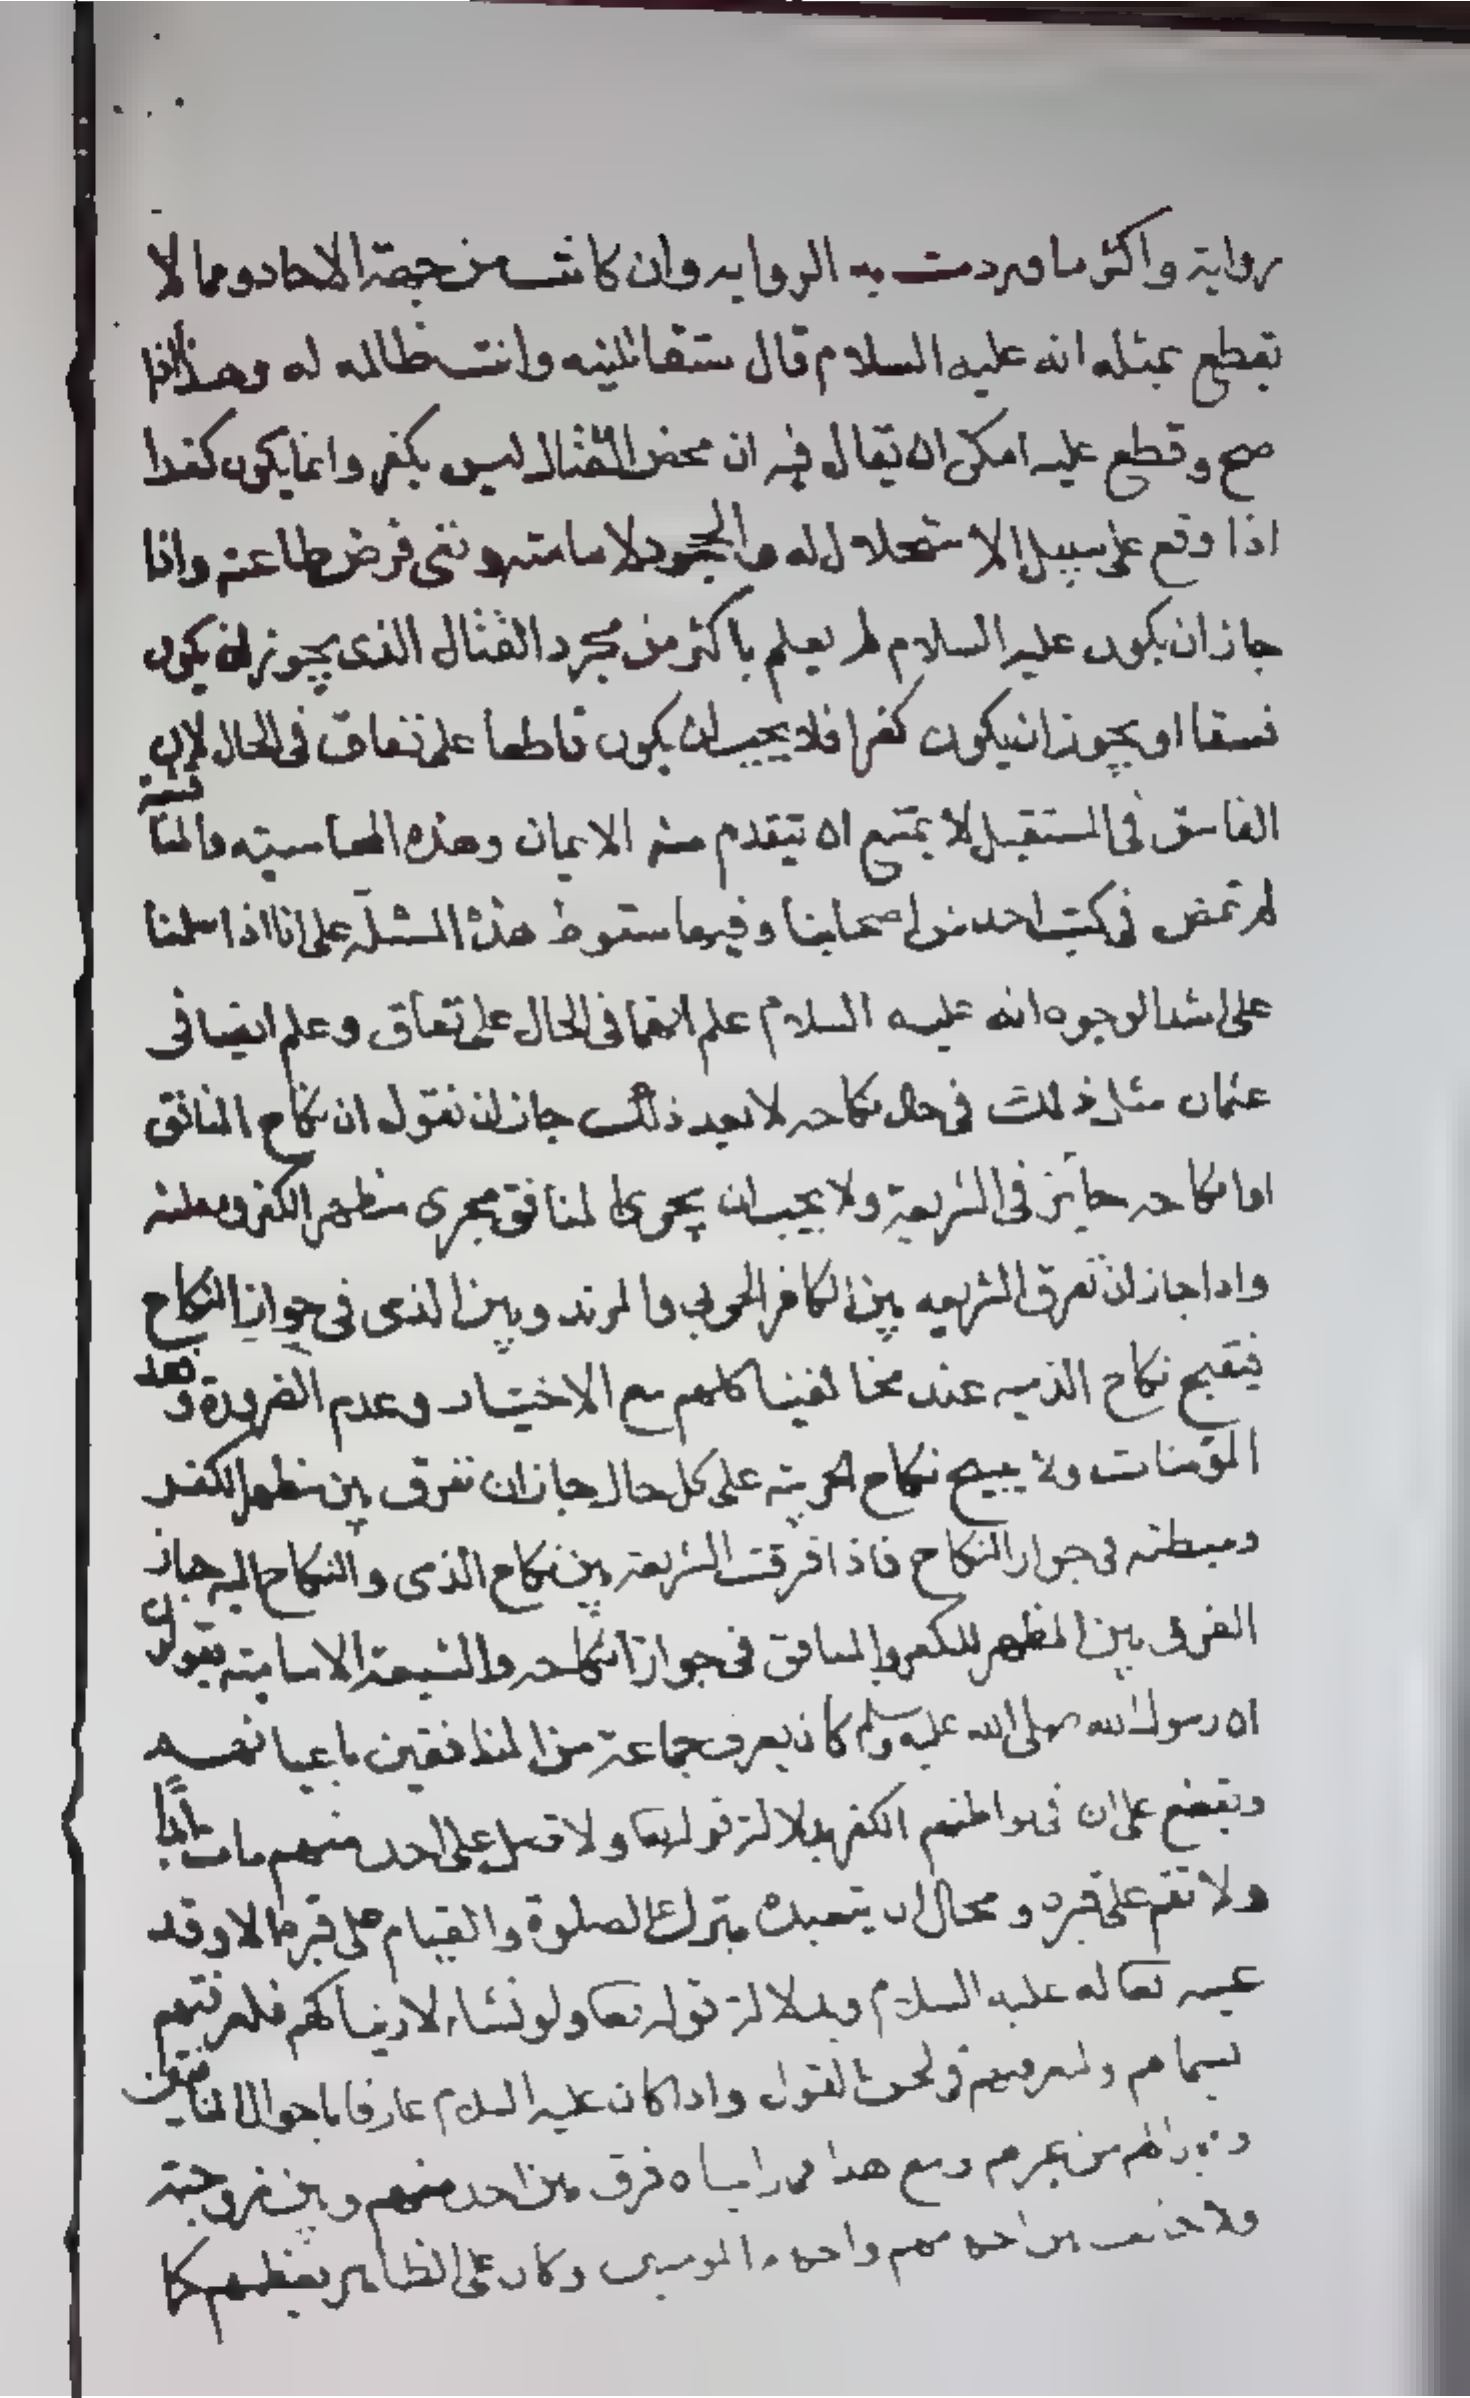 رواية واكثر ما وردت به الرواية وان كانت من جهة الاحاد ومما لا
نقطع بمثله انه عليه السلام قال ستقاتلينه وانت ظالمه له وهذا اذا
صح وقطع عليه امكن ان يقال فيه ان محض القتال ليس بكفر وانما يكون كفرا
اذا وقع على سبيل الاستحلال له والجحود لامامته ونفى فرض طاعته واذا
جاز ان يكون عليه السلام لم يعلم باكثر من مجرد القتال الذى يجوز ان يكون
فسقا او يجوز ان يكون كفرا فلا يجب ان يكون قاطعا على نفاق فى الحال لان
الفاسق فى المستقبل لا يمتنع ان يتقدم منه الايمان وهذه المحاسبته والمناقشة
لم تمض فى كتب احد من اصحابنا وفيها سقوط هذه المسئلة على انا اذا سلمنا
على اشد الوجوه انه عليه السلام علم انهما فى الحال على نفاق وعلم ايضا فى
عثمان مثل ذلك فى حال نكاحه لا بعد ذلك جاز ان نقول ان نكاح المنافق
او انكاحه جائز فى الشريعة ولا يجب ان يجرى المنافق مجرى مظهر الكفر ومعلنه
واذا جاز ان تفرق الشريعه بين الكافر الحربى والمرتد وبين الذى فى جواز النكاح
فيقبح نكاح الذميه عند مخالفينا كلهم مع الاختيار وعدم الضرورة وفقد
المؤمنات ولا يبيح نكاح الحربية على كل حال جاز ان نفرق بين مظهر الكفر
ومبطنه فى جواز النكاح فاذا فرقت الشريعة بين نكاح الذى والنكاح اليه جاز
الفرق بين المظهر للكفر والمنافق فى جواز انكاحه والشيعة الامامية يقول
ان رسول الله صلى الله عليه وسلم كان يعرف جماعة من المنافقين باعيانهم
ويقضع على ان فى بواطنهم الكفر بدلالة قوله تعا ولا تصل على احد منهم مات ابدا
ولا تقم على قبره ومحال ان يتعبده بترك الصلوة والقيام على قبره الا وقد
عينه تعا له عليه السلام وبدلالة قوله تعا ولو نشاء لاريناكهم فلعرفتهم
بسيماهم ولتعرفنهم فى لحن القول واذا كان عليه السلام عارفا باحوال المنافقين
من غيرهم ومع هذا فما رايناه فرق بين احد منهم وبين زوجته
ولا بين احد منهم واحد من المؤمنين وكان على الظاهر يعظمهم كما